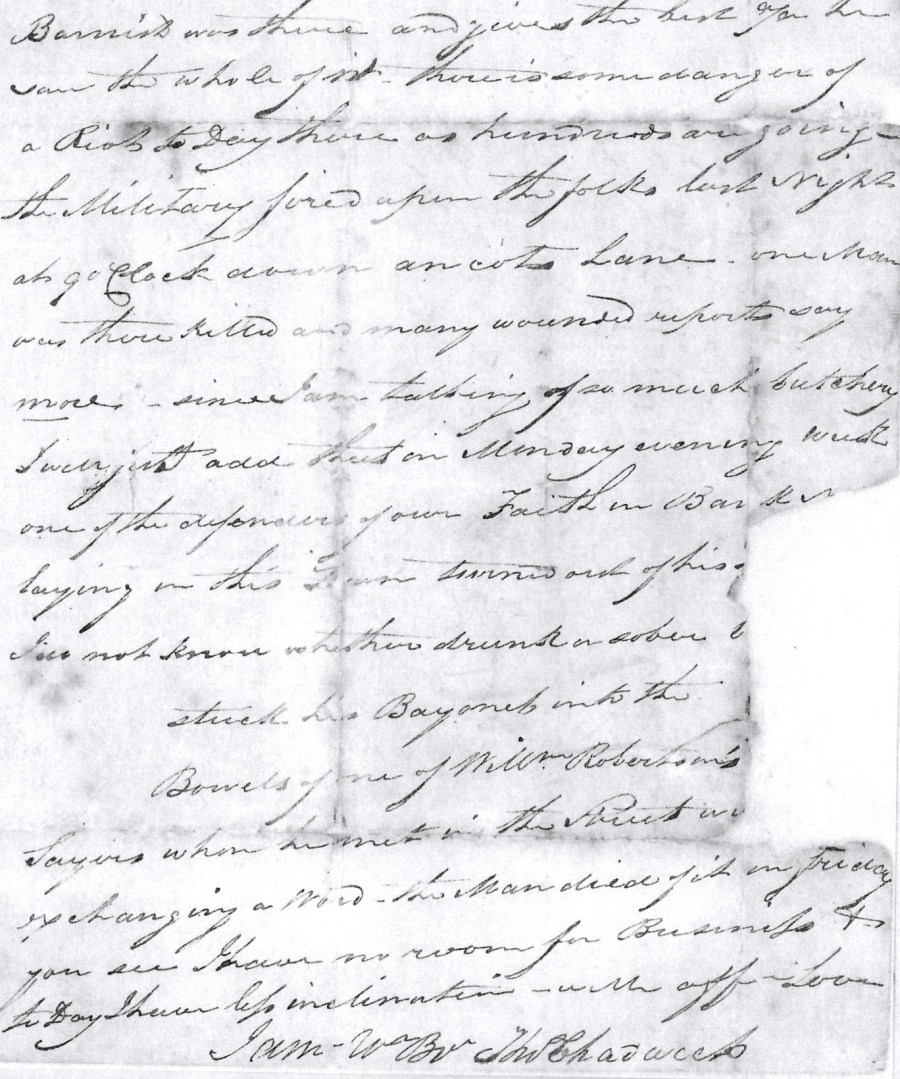 Barnish was there and gives the best for he
saw the whole of it - there is some danger of
a Riot to Day there as hundreds are going -
the Military fired upon the folks last Night
at 9 o Clock down ancots Lane - one Man
was there killed and many wounded reports say
more - since I am talking of so much butchery
I will just add that on Monday evening week
one of the defenders of our Faith in Bar
laying in this Town turned out of his
I do not know whether drunk or sober
stuck his Bayonet into the
Bowels of one of Willm Robertson's
Sayers whom he met in the Street
exchanging a Word - the Man died of it on Friday
you see I have no room for Business &
to Day I have less inclination - with aff - Love
I am - Yr Br Thos Chadwick